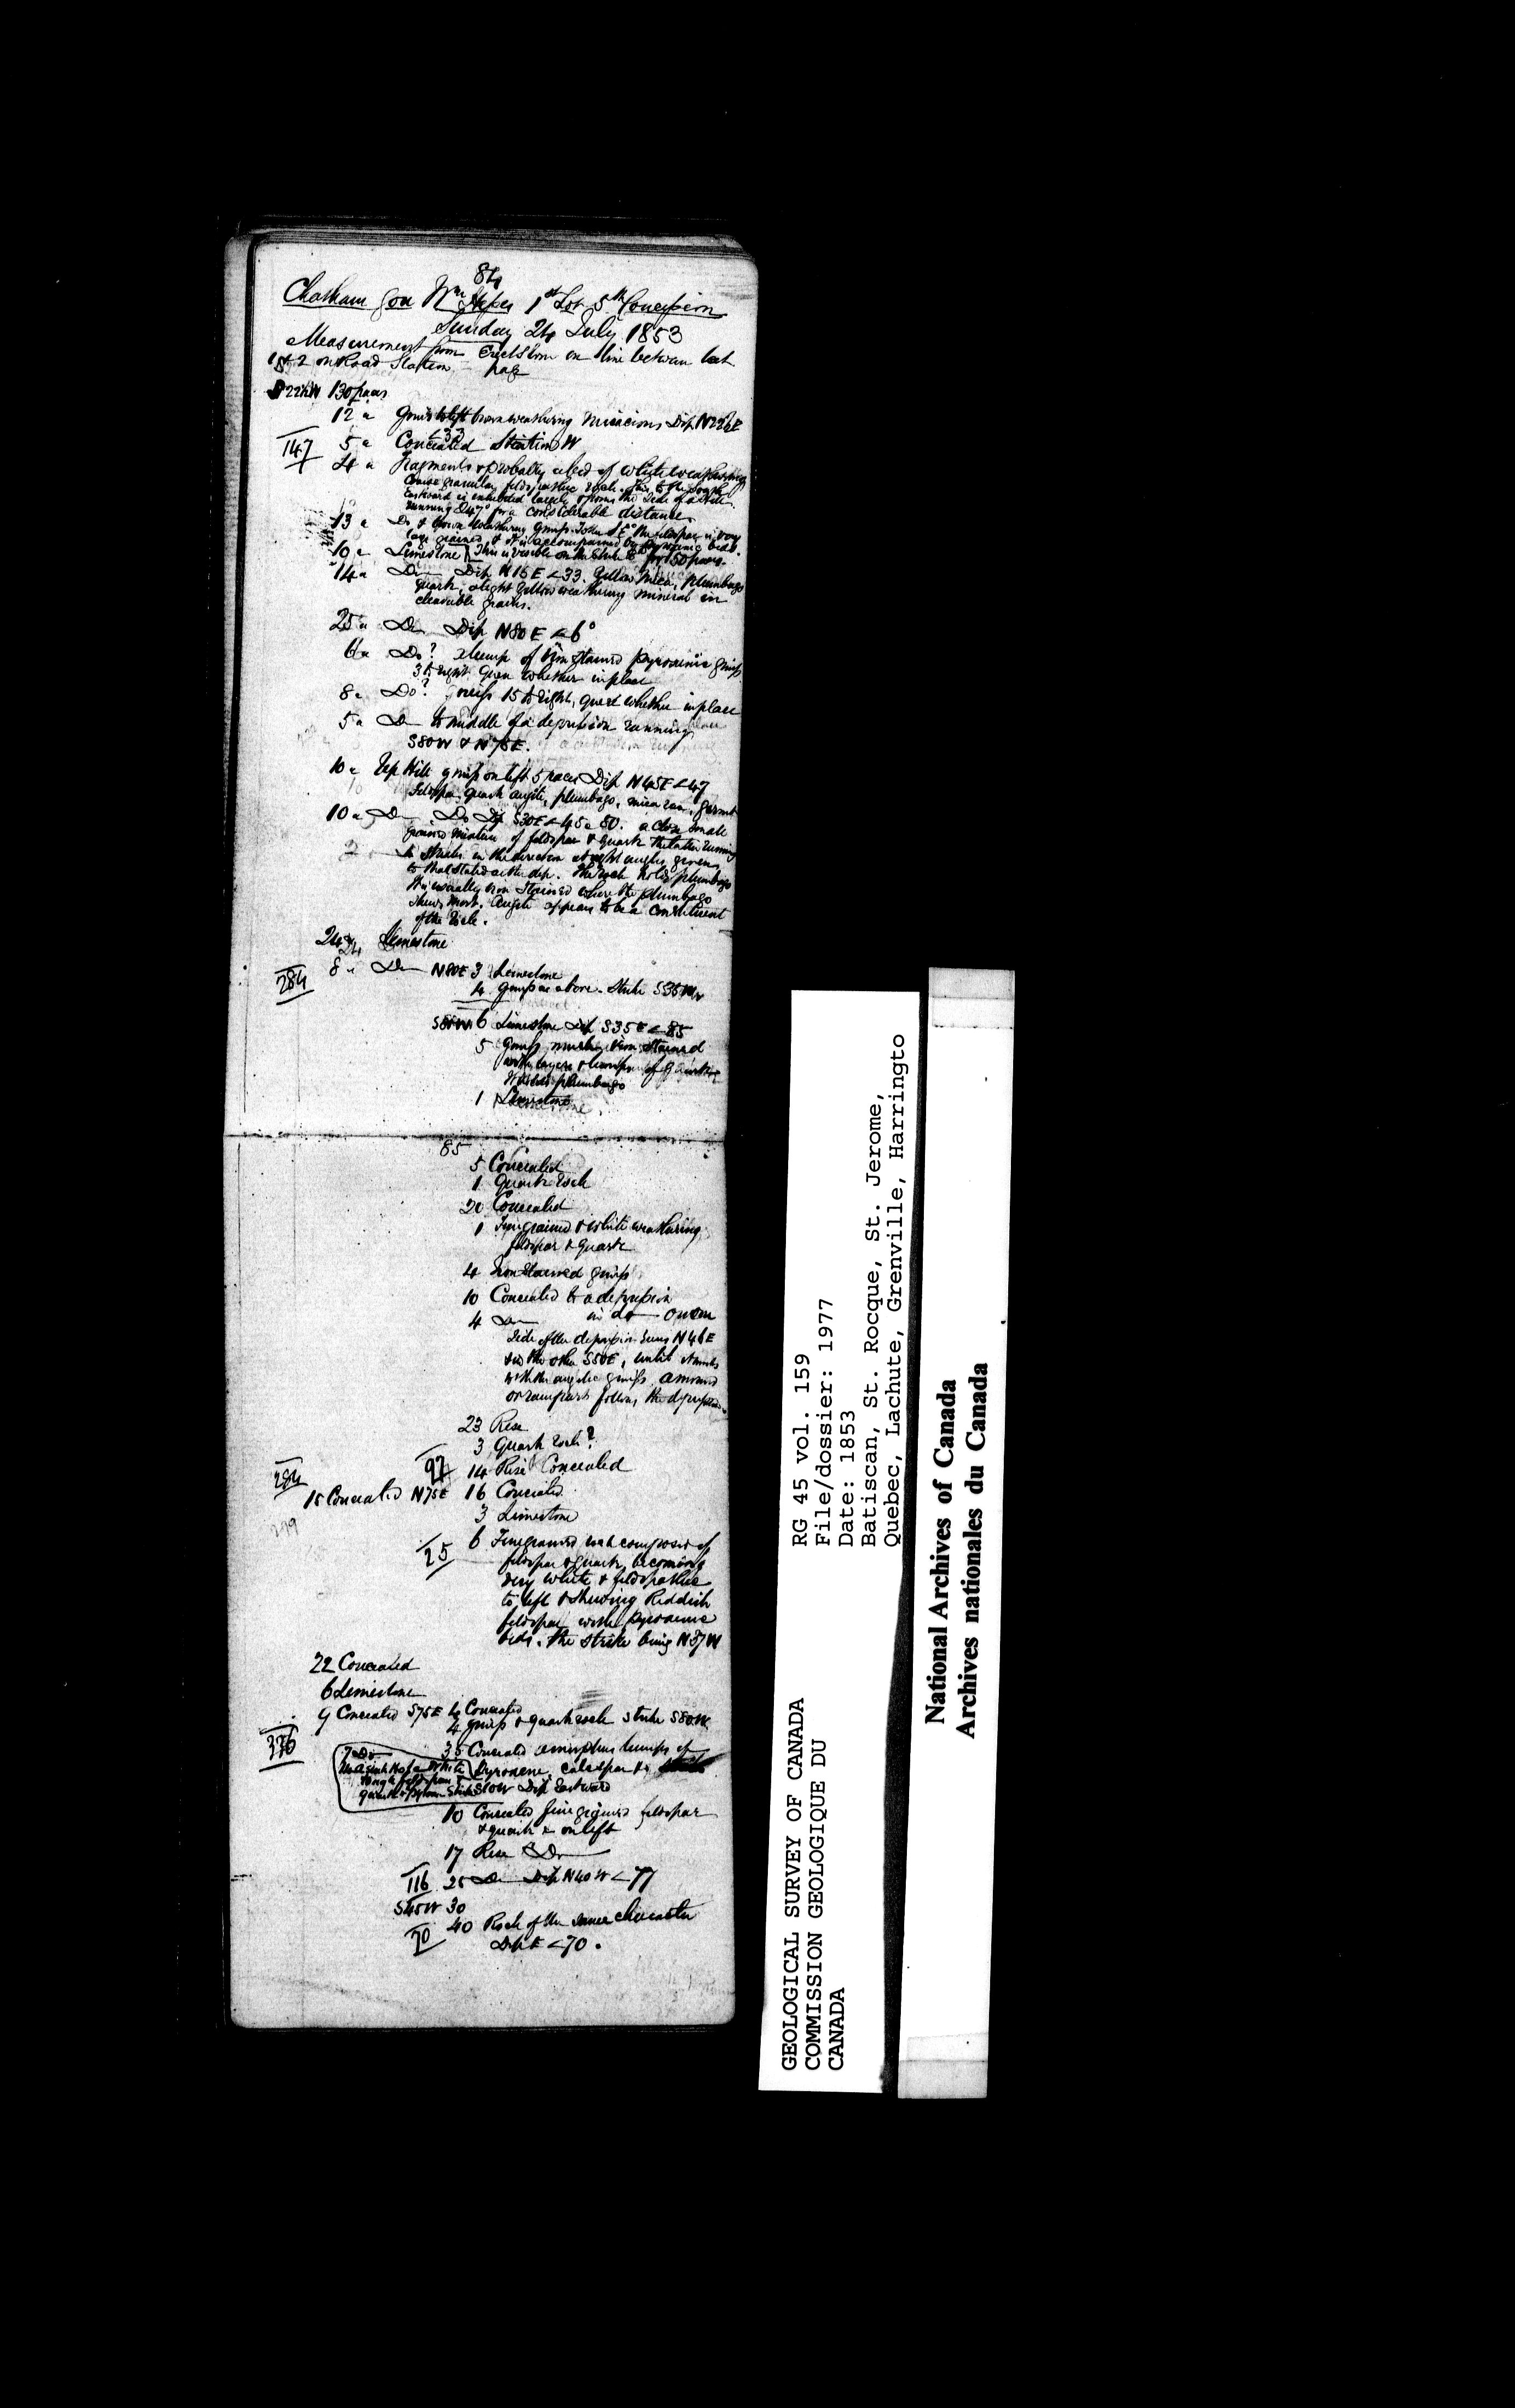 84
Chatham Gore Wm 1st Lot 5th Concession
Sunday 24 July 1853
Measurement from on line between Lot
1 & 2 on Road Station page
S 22½ W 130 paces
12 " Gneiss to left brown weathering micaceous Dip N22½E
<33
147 5 " Concealed W
4 " Fragments & probably a bed of white weathering
Coarse granular feldspathic rock. This to the South
Eastward is exhibited largely & forms the side of a
running 47° for a considerable distance
13 " Do & brown weathering gneiss. To the the feldspar is very
large grained & it is accompanied by pyroxenic beds.
10 " Limestone This is visible on the strike for 150 paces.
14 " Do Dip N15E <33. Yellow mica, plumbago
quartz, slight yellow weathering mineral in
cleavable grains.
25 " Do Dip N80E <6°
6 " Do? a lump of iron stained pyroxenic gneiss
3 to right. Quere whether in place
8 " Do? gneiss 15 to right, quere whether in place
5 " Do to middle of a depression running
S80W & N75E.
10 " Top Hill gneiss on left 5 paces Dip N45E <47
Feldspar, quartz augite, plumbago, mica, garnet
10 " Do Do Dip S30E <45 a 80. a close small
grained mixture of feldspar & quartz the latter running
in streaks in the direction at right angles given
to that stated as the dip. The rock holds plumbago
It is usually iron stained where the plumbago
shews most. Augite appears to be a constituent
of the rock.
24 " Limestone
24
284 8 " Do N80E 3 Limestone
4 gneiss as above. Strike S35W
S80W 6 Limestone Dip S35E <85
5 gneiss much iron stained
with layers & lumps of quartz
It holds plumbago
1 Limestone
85
5 Concealed
1 Quartz rock
20 Concealed
1 Fine grained & white weathering
feldspar & quartz
4 Iron stained gneiss
10 Concealed to a depression
4 Do in do on one
side of the depression runs N46E
& on the other S50E, until it
with the augitic gneiss
or rampart follows the depression
23 Rise
3 Quartz rock?
97 14 Rise Concealed
284
15 Concealed N75E 16 Concealed
299
3 Limestone
25 6 Fine grained rock composed of
feldspar & quartz, becoming
very white & feldspathic
to left & shewing Reddish
feldspar with pyroxenic
beds. The strike being N37W
22 Concealed
6 Limestone
9 Concealed S75E 4 Concealed
4 gneiss & quartz rock strike S80W
336
7 Do 35 Concealed amorphous lumps of
Pyroxene, calcspar &c
of a white
rough feldspar
quartz & Strike S10W Dip Eastward
10 Concealed fine grained feldspar
& quartz & on left
17 Rise & Do
116 25 Do Dip N40W <77
S45W 30
70 40 Rock of the same character
Dip E <70.
GEOLOGICAL SURVEY OF CANADA
COMMISSION GEOLOGIQUE DU
CANADA
RG 45 vol. 159
File/dossier: 1977
Date: 1853
Batiscan, St. Rocque, St. Jerome,
Quebec, Lachute, Grenville, Harringto
National Archives of Canada
Archives nationales du Canada